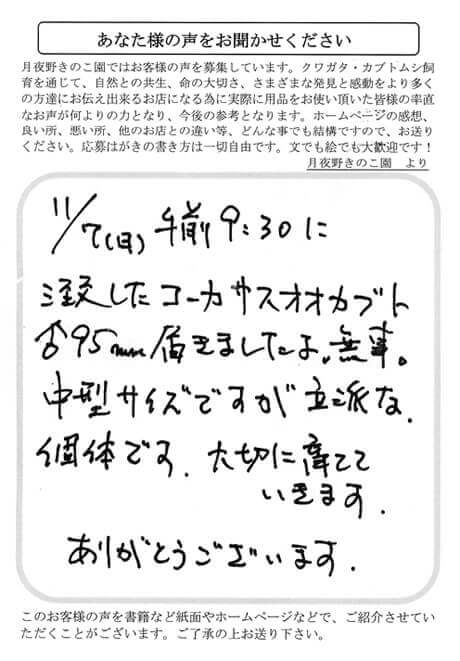 あなた様の声をお聞かせください
月夜野きのこ園ではお客様の声を募集しています。クワガタ・カブトムシ飼
育を通じて、自然との共生、命の大切さ、さまざまな発見と感動をより多く
の方達にお伝え出来るお店になる為に実際に用品をお使い頂いた皆様の率直
なお声が何よりの力となり、今後の参考となります。ホームページの感想、
良い所、悪い所、他のお店との違い等、どんな事でも結構ですので、お送り
ください。応募はがきの書き方は一切自由です。文でも絵でも大歓迎です！
月夜野きのこ園　より
11/7(日) 午前9:30に
注文したコーカサスオオカブト
♂95mm届きましたよ。無事。
中型サイズですが立派な.
個体です. 大切に育てて
いきます.
ありがとうございます.
このお客様の声を書籍など紙面やホームページなどで、ご紹介させてい
ただくことがございます。ご了承の上お送り下さい。